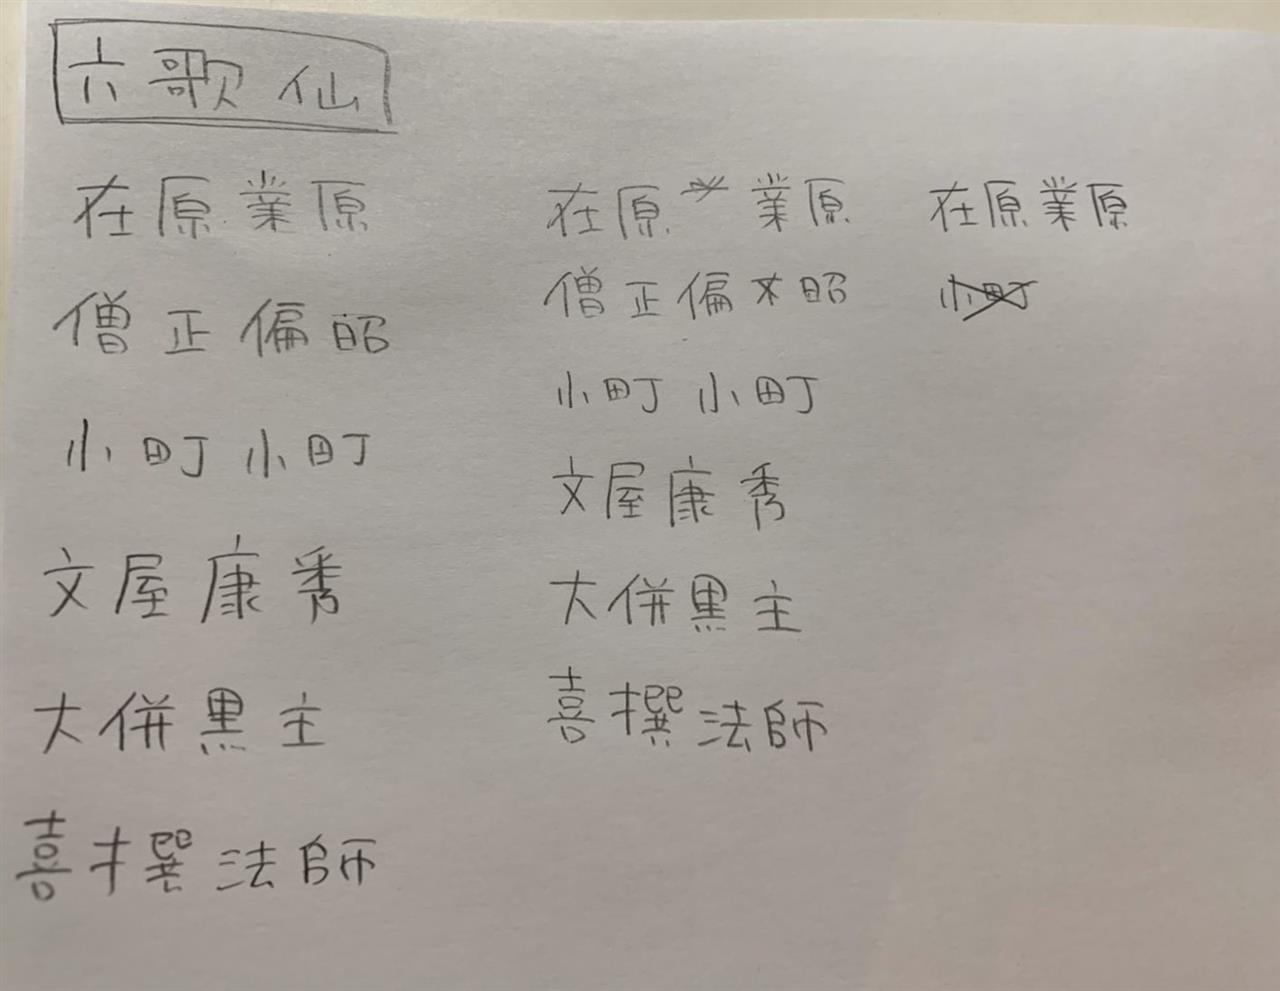 六歌仙
在原業原
僧正偏昭
小町小町
文屋康秀
大併黒主
喜撰法師
在原業原
僧正偏昭
小町小町
文屋康秀
大併黒主
喜撰法師
在原業原
小町